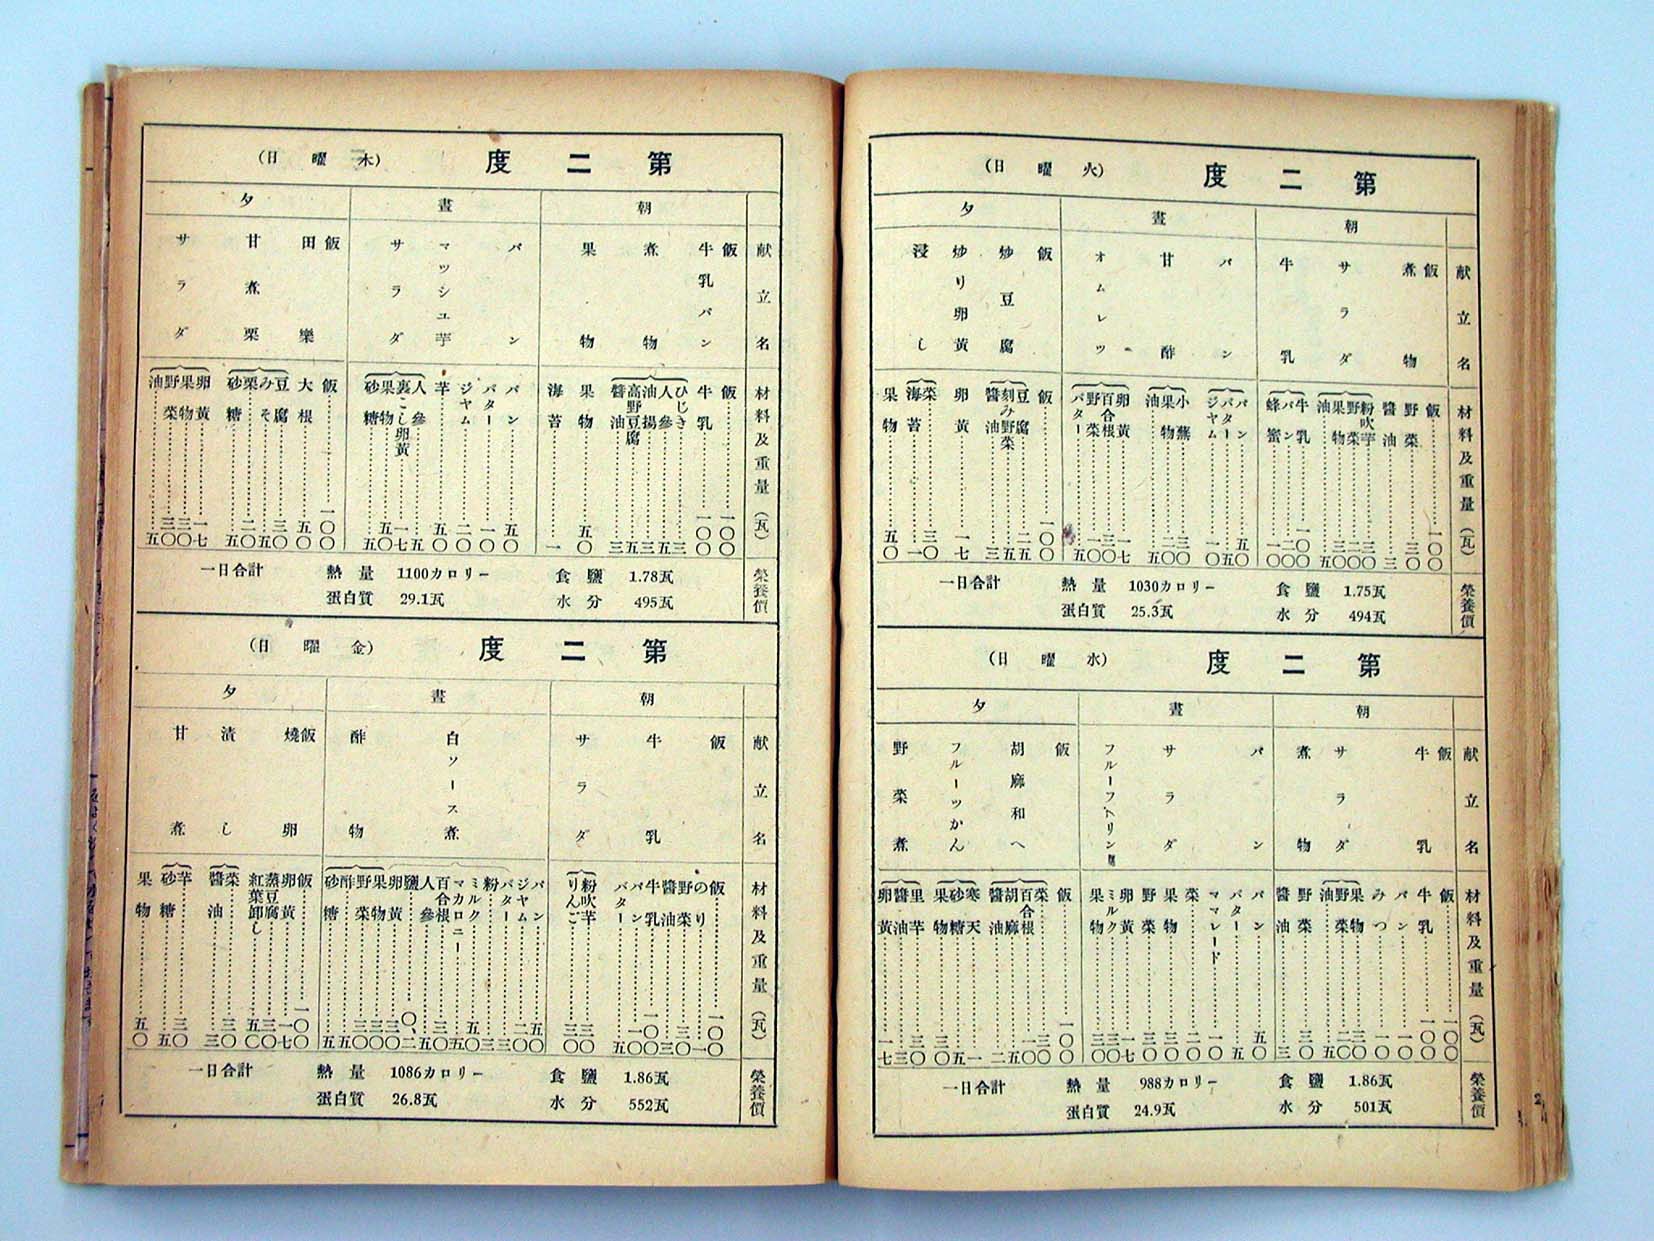 第二度 (火曜日)
朝
晝
夕
献立名
飯
煮物
サラダ
牛乳
パン
甘酢
オムレツ
飯
炒豆腐
炒り卵黄
浸し
材料及重量(瓦)
飯 一〇〇
野菜 三〇
醬油 三
粉吹芋 三〇
野菜 三〇
果物 二〇
油 五
牛乳 一〇〇
パン 二〇
蜂蜜 一〇
パン 五〇
バター 五
ジヤム 一〇
小蕪 三〇
果物 二〇
油 五
卵黄 一七
百合根 三〇
野菜 一〇
バター 五
飯 一〇〇
豆腐 五〇
刻み野菜 二五
醬油 三
卵黄 一七
菜 三〇
海苔 一
果物 五〇
榮養價
一日合計 熱量 1030カロリー 食鹽 1.75瓦
蛋白質 25.3瓦 水分 494瓦
第二度 (水曜日)
朝
晝
夕
献立名
飯
牛乳
サラダ
煮物
パン
サラダ
フルーツプリン
飯
胡麻和へ
フルーツかん
野菜煮
材料及重量(瓦)
飯 一〇〇
牛乳 一〇〇
パン 一〇
みつ 一〇
果物 三〇
野菜 二〇
油 五
野菜 三〇
醬油 三
パン 五〇
バター 五
ママレード 一〇
菜 二〇
果物 三〇
野菜 三〇
卵黄 一七
ミルク 三〇
果物 三〇
飯 一〇〇
菜 三〇
百合根 一〇
胡麻 五
醬油 二
寒天 一
砂糖 五
果物 三〇
里芋 三〇
醬油 三
卵黄 一七
榮養價
一日合計 熱量 988カロリー 食鹽 1.86瓦
蛋白質 24.9瓦 水分 501瓦
第二度 (木曜日)
朝
晝
夕
献立名
飯
牛乳パン
煮物
果物
パン
マツシユ芋
サラダ
飯
田樂
甘煮栗
サラダ
材料及重量(瓦)
飯 一〇〇
牛乳 一〇〇
ひじき 三
人參 五
油揚 三
高野豆腐 五
醬油 三
果物 五〇
海苔 一
パン 五〇
バター 一〇
ジヤム 二〇
芋 五〇
人參 五
裏ごし卵黄 一七
果物 五〇
砂糖 五
飯 一〇〇
大根 五〇
豆腐 三〇
みそ 五
栗 二〇
砂糖 五
卵黄 一七
果物 三〇
野菜 三〇
油 五
榮養價
一日合計 熱量 1100カロリー 食鹽 1.78瓦
蛋白質 29.1瓦 水分 495瓦
第二度 (金曜日)
朝
晝
夕
献立名
飯
牛乳
サラダ
白ソース煮
酢物
飯
燒卵
漬し
甘煮
材料及重量(瓦)
飯 一〇〇
のり 一
野菜 三〇
醬油 三
牛乳 一〇〇
パン 一〇
バター 五
粉吹芋 三〇
りんご 三〇
パン 五〇
ジヤム 二〇
バター 三
粉 三
ミルク 五〇
マカロニー 五
百合根 五〇
人參 三
鹽 〇、二
卵黄 三〇
果物 三〇
野菜 三〇
酢 五
砂糖 五
飯 一〇〇
卵黄 一七
蒸豆腐 三〇
紅葉卸し 五〇
菜 三〇
醬油 三
芋 三〇
砂糖 五
果物 五〇
榮養價
一日合計 熱量 1086カロリー 食鹽 1.86瓦
蛋白質 26.8瓦 水分 552瓦